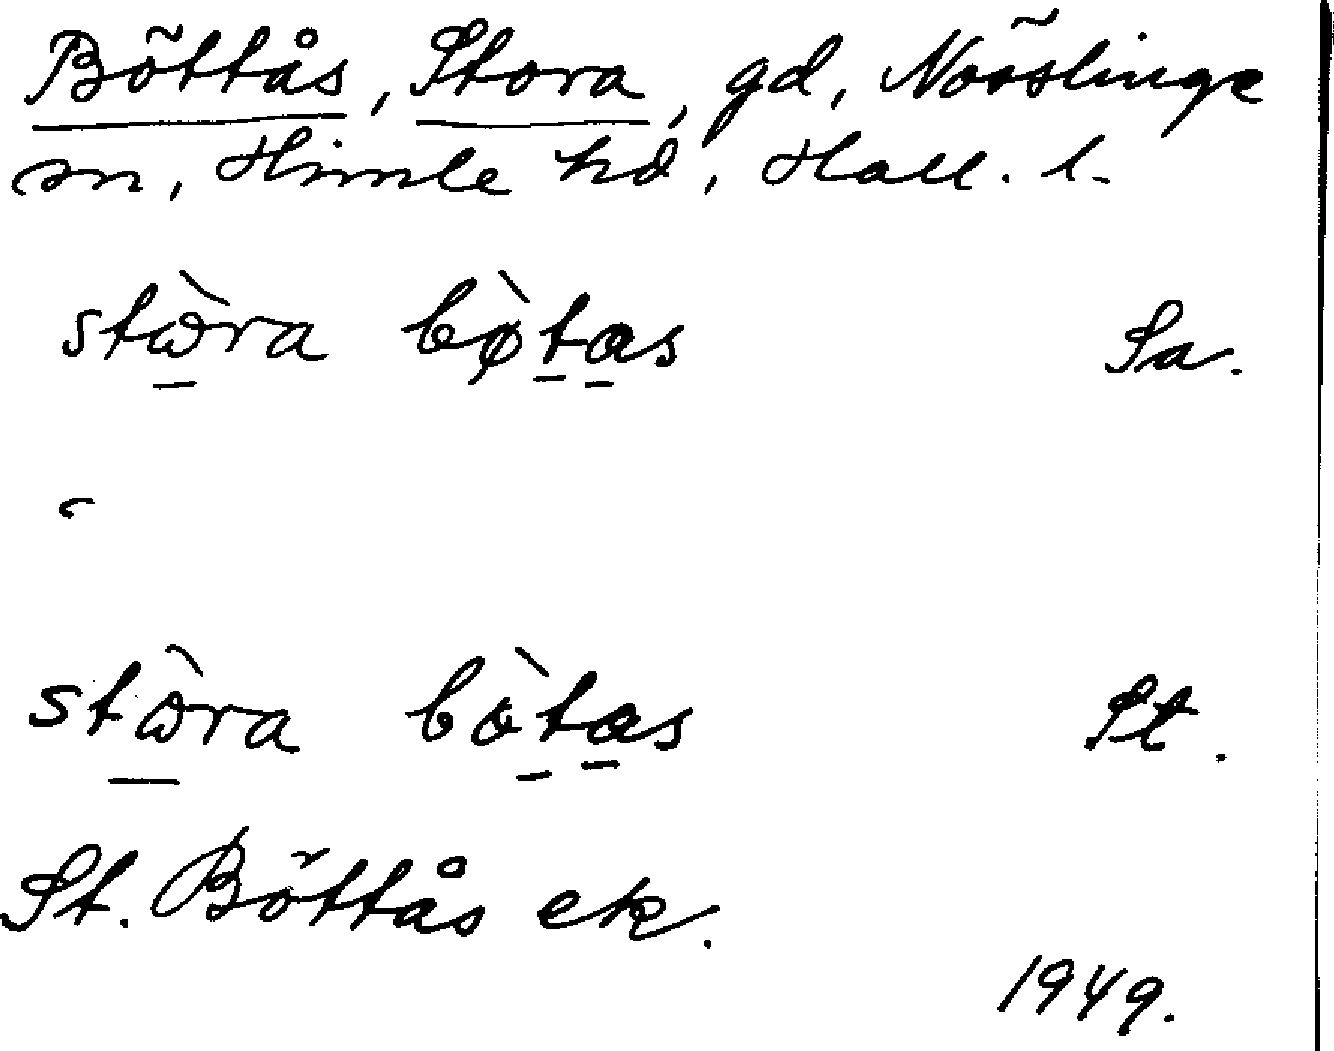 Böttås, Stora, gd, Nösslinge
sn, Himle hd, Hall. l.
stɷ̀ra bø̀tas Sa.
stɷ̀ra bòtas St.
St. Böttås ek.
1949.